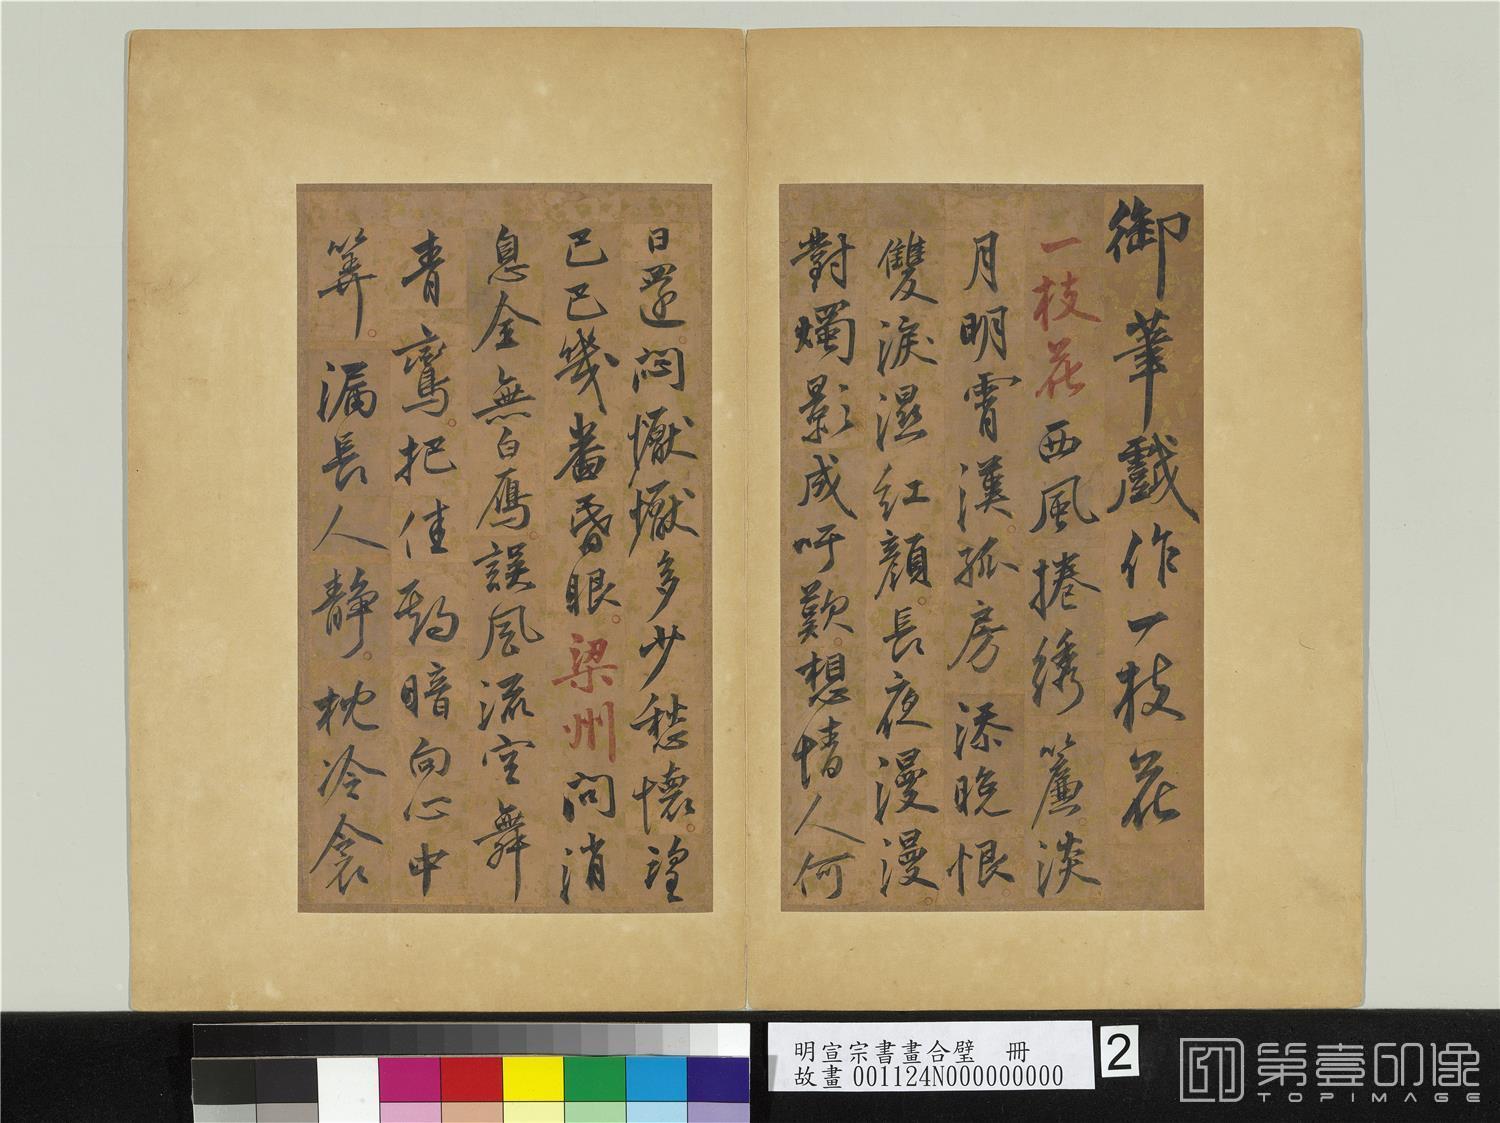 御筆戲作一枝花
一枝花西風捲绣簾淡
月明霄漢。孤房添晚恨
雙淚濕紅顏。長夜漫漫。
對燭影成吁歎。想情人何
日還。悶懨懨多少愁懷。
巴巴幾番昏眼。梁州問消
息全無白鴈誤風流空舞
青鸞。把佳期暗向心中
筭。漏長人靜。枕冷衾
明宣宗書畫合璧 冊
故畫 001124N000000000
2
第壹印像
TOPIMAGE